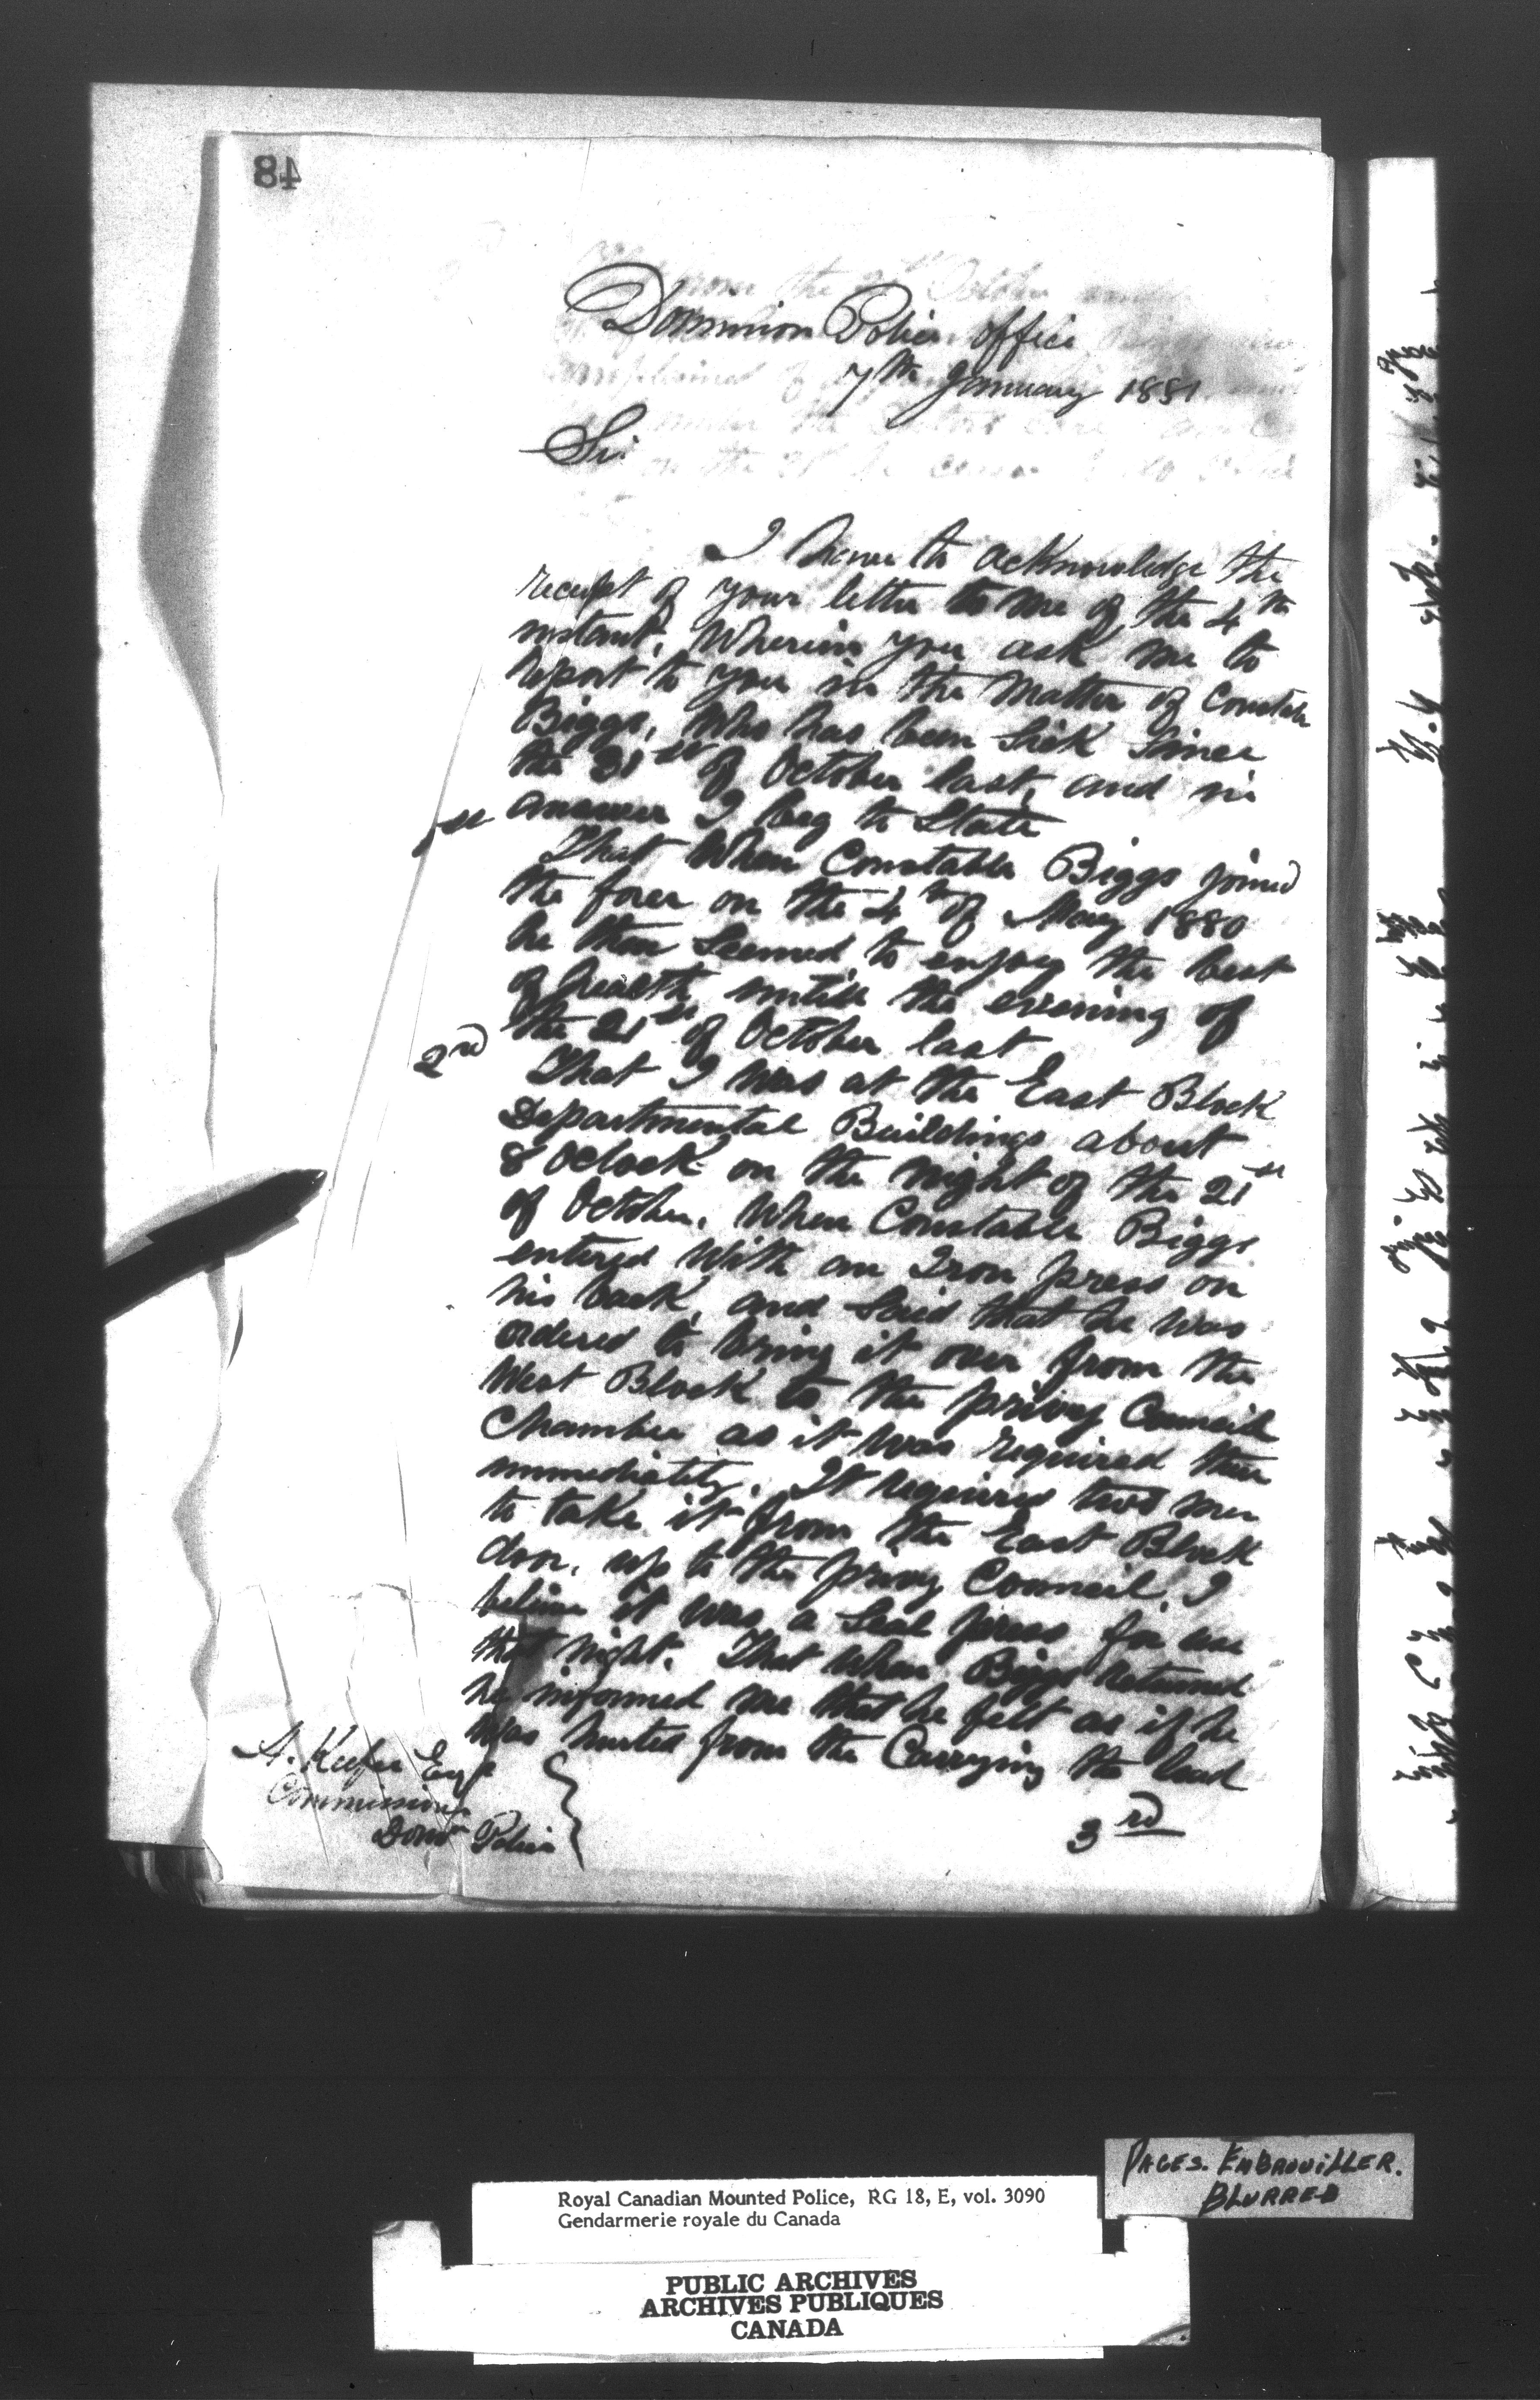 48
Dominion Police office
7th January 1881
Sir
I have to acknowledge the
receipt of your letter to me of the 4th
instant, Wherein you ask me to
report to you in the Matter of Constable
Biggs, Who has been Sick Since
the 21st of October last, and in
answer I beg to State
1st That When Constable Biggs joined
the force on the 4th of May 1880
he then Seemed to enjoy the best
of health untill the evening of
the 21st of October last
2nd That I was at the East Block
Departmental Buildings about
8 Oclock on the night of the 21st
of October, When Constable Biggs
entered With an Iron press on
his back, and Said that he was
ordered to bring it over from the
West Block to the privy Council
Chamber as it was required there
immediately. It required two men
to take it from the East Block
door, up to the privy Council, I
believe it was a Seal press for use
that night. That when Biggs returned
he informed me that he felt as if he
was hurted from the Carrying the load
3rd
A. Keefer Esqr
Commissioner
Domn Police
PAGES. EMBROUILLER.
BLURRED
Royal Canadian Mounted Police, RG 18, E, vol. 3090
Gendarmerie royale du Canada
PUBLIC ARCHIVES
ARCHIVES PUBLIQUES
CANADA